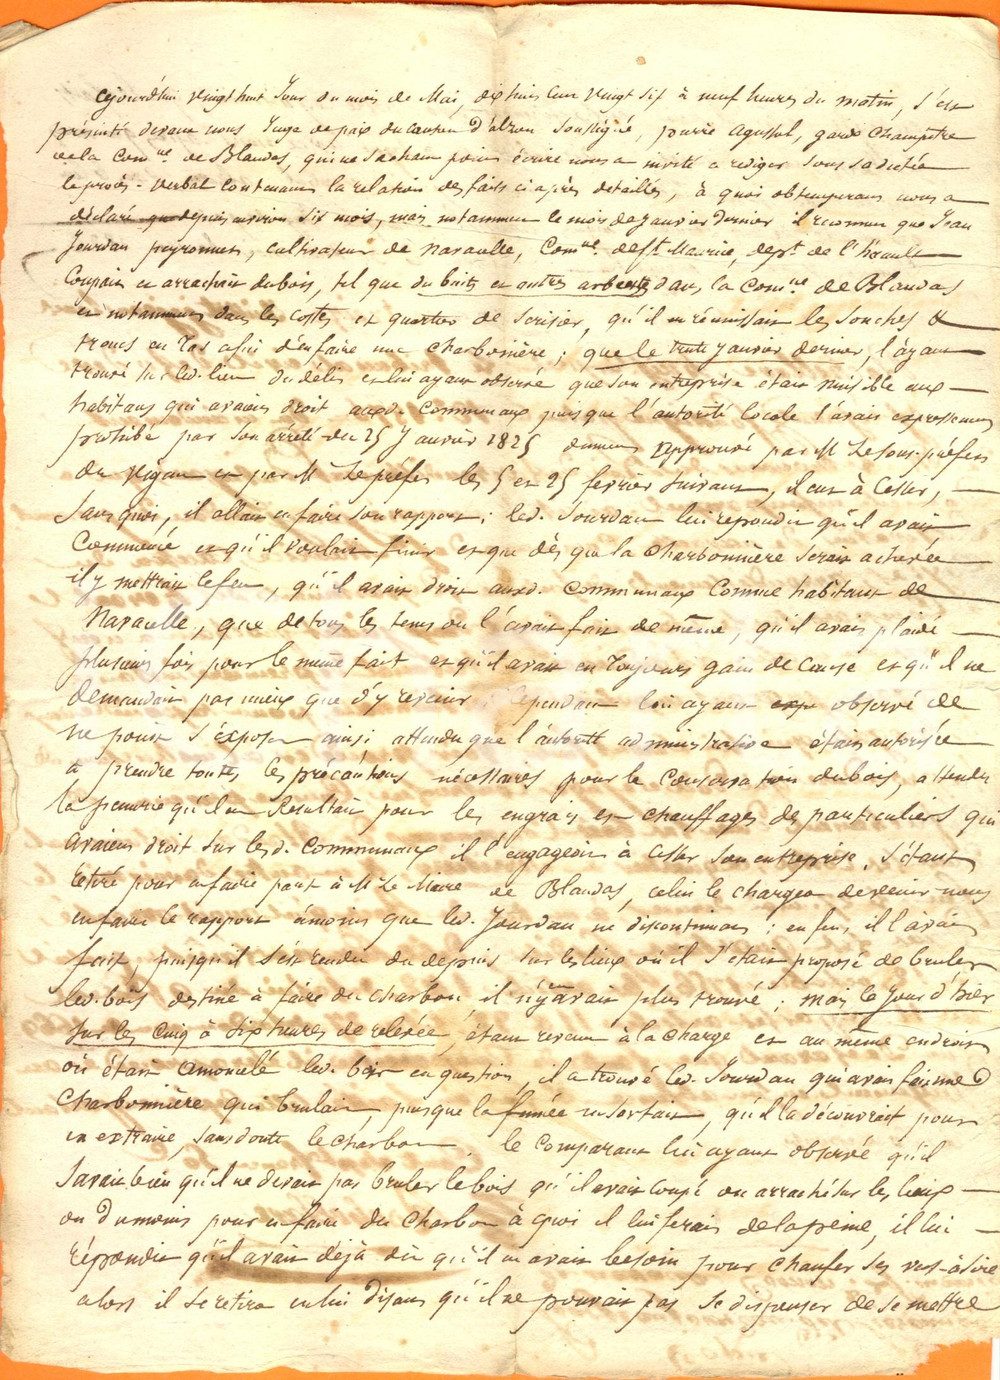 Cejourd'hui vingt huit Jour du mois de Mai, dix huit Cent vingt six à neuf heures du matin, s'est
présenté devant nous Juge de paix du canton d'alzon soussigné, pierre Agussol, garde champêtre
de la Com^ne. de Blandas, qui ne sachant point écrire nous a invité a rediger sous sa dictée
le procès-verbal contenant la relation des faits ci après detaillés, à quoi obtemperant nous a
déclaré que depuis environ six mois, mais notamment le mois de janvier dernier il reconnu que Jean
Jourdan peyronnet, cultivateur de navacelle, Com^ne. de S^t. Maurice, dep^t. de l'hérault
Coupait et arrachait du bois, tel que du buits et autres arbustes dans la Com^ne. de Blandas
et notamment dans les costes et quartier de serisier, qu'il en réunissait les souches &
troncs en tas afin d'en faire une charbonière ; que le trente janvier dernier, l'ayant
trouvé sur led. lieu du délit et lui ayant observé que son entreprise était nuisible aux
habitans qui avaient droit auxd. communaux puisque l'autorité locale l'avait expressement
prohibé par son arrêté du 25 Janvier 1825 dument approuvé par M le sous-préfet
du vigan et par M le préfet les 5 et 25 fevrier suivant, il eut à Cesser,
sans quoi, il allait en faire son rapport ; led. Jourdan lui repondit qu'il avait
Commencé et qu'il voulait finir et que dès que la charbonnière serait achevée
il y mettrait le feu, qu'il avait droit auxd. communaux Comme habitant de
Navacelle, que de tous les tems on l'avait fait de même, qu'il avait plaidé
plusieurs fois pour le même fait et qu'il avait eu toujours gain de Cause et qu'il ne
demandait pas mieux que d'y revenir ; Cependant lui ayant observé de
ne point s'exposer ainsi attendu que l'autorité administrative était autorisée
à prendre toutes les précautions nécessaires pour la Conservation du bois, attendu
la penurie qu'il en Resultait pour les engrais et chauffages de particuliers qui
avaient droit sur lesd. Communaux il l'engageait à Cesser son entreprise. S'étant
retiré pour en faire part à M le Maire de Blandas, celui le chargea de venir nous
en faire le rapport àmoins que led. Jourdan ne discontinuat ; en fin, il l'avait
fait, puisqu'il s'est rendu du depuis sur les lieux où il s'etait proposé de bruler
led. bois destiné à faire du charbon il n'y en avait plus trouvé ; mais le jour d'hier
sur les Cinq à six heures de relevée, étant revenu à la Charge et au même endroit
où était amoncelé led. bois en question, il a trouvé led. Jourdan qui avait formé
Charbonnière qui brulait, puisque la fumée en sortait, qu'il la découvrait pour
en extraire, sans doute le charbon. le Comparant lui ayant observé qu'il
savait bien qu'il ne devait pas bruler le bois qu'il avait coupé ou arraché sur les lieux
ou du moins pour en faire du charbon à quoi il lui ferait de la peine, il lui
répondit qu'il avait déjà dit qu'il en avait besoin pour chaufer ses vers-à-soie
alors il se retira en lui disant qu'il ne pouvait pas se dispenser de se mettre